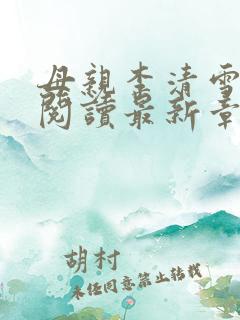 母親李清雪
閱讀最新章
胡村
未任同意禁止转载